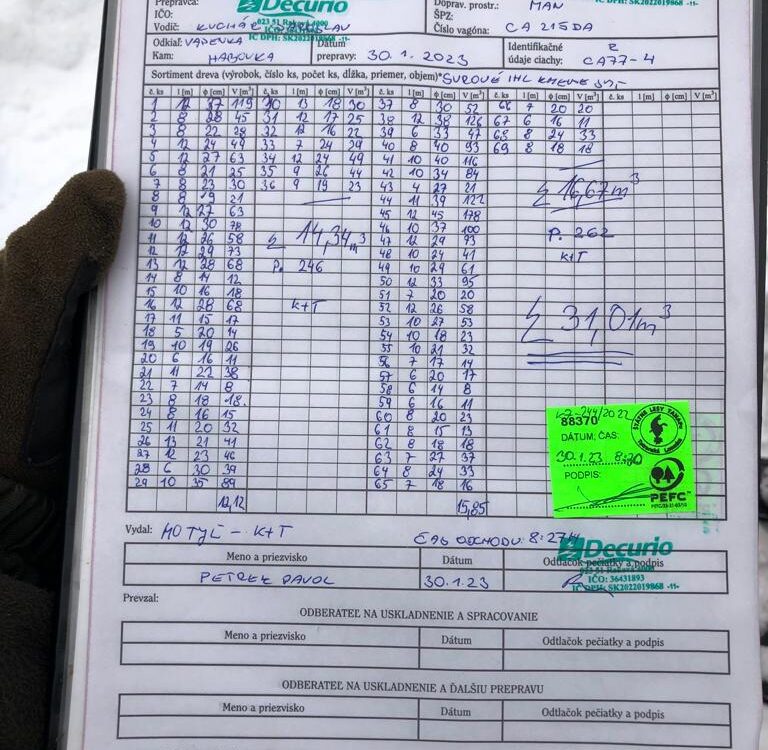 Prepravca:
IČO:
Decurio
023 51 Raková 1000
IČ DPH: SK2022019868 -11-
Doprav. prostr.: MAN
ŠPZ:
Vodič: KUCHÁR
Číslo vagóna: CA 215DA
Odkiaľ:
Dátum prepravy: 30.1.2023
Identifikačné údaje ciachy: CA77-4
Kam: HABOVKA
Sortiment dreva (výrobok, číslo ks, počet ks, dĺžka, priemer, objem)* SUROVÉ IHL KMENE
č. ks l [m] ϕ [cm] V [m³] č. ks l [m] ϕ [cm] V [m³] č. ks l [m] ϕ [cm] V [m³] č. ks l [m] ϕ [cm] V [m³] č. ks l [m] ϕ [cm] V [m³]
1 12 37 119 30 13 18 30 37 8 30 52 66 7 20 20
2 8 28 45 31 12 17 25 38 12 38 126 67 6 16 11
3 8 22 28 32 12 16 22 39 6 33 47 68 8 24 33
4 12 24 49 33 7 24 29 40 8 40 93 69 8 18 18
5 12 27 63 34 12 24 49 41 10 40 116
6 8 21 25 35 9 26 44 42 10 34 84
7 8 23 30 36 9 19 23 43 4 27 21
Σ 16,67m³
8 8 19 21 44 11 39 122
9 12 27 63 45 12 45 178
10 12 30 78 46 10 37 100
Σ 14,34m³
P. 262
11 12 26 58 47 12 29 73
12 12 29 73 48 10 24 41
K+T
13 12 28 68 P. 246 49 10 29 61
14 8 14 12 50 12 33 95
15 10 16 18 51 7 20 20
16 12 28 68 K+T 52 12 26 58
Σ 31,01m³
17 11 15 17 53 10 27 53
18 5 20 14 54 10 18 23
19 10 19 26 55 10 21 32
20 6 16 11 56 7 17 14
21 11 22 38 57 6 20 17
22 7 14 8 58 6 14 8
23 8 18 18 59 6 16 11
24 8 16 15 60 8 20 23
25 11 20 32 61 8 15 13
26 13 21 41 62 8 18 18
27 12 23 46 63 7 27 37
28 6 30 39 64 8 24 33
29 10 35 89 65 7 18 16
12,12 15,85
88370
DÁTUM; ČAS:
30.1.23 8:20
PODPIS:
ŠTÁTNE LESY TANAPU
PEFC
Vydal: MOTYĽ - K+T
ČAS ODCHODU: 8:27H
Decurio
023 51 Raková 1000
IČO: 36431893
IČ DPH: SK2022019868 -11-
Meno a priezvisko Dátum Odtlačok pečiatky a podpis
PETREK PAVOL 30.1.23
Prevzal:
ODBERATEĽ NA USKLADNENIE A SPRACOVANIE
Meno a priezvisko Dátum Odtlačok pečiatky a podpis
ODBERATEĽ NA USKLADNENIE A ĎALŠIU PREPRAVU
Meno a priezvisko Dátum Odtlačok pečiatky a podpis